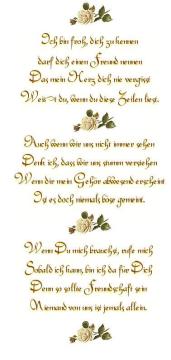 Ich bin froh, dich zu kennen
darf dich einen Freund nennen
Das mein Herz dich nie vergisst
Weisst du, wenn du diese Zeilen liest.
Auch wenn wir uns nicht immer sehen
Denk ich, dass wir uns stumm verstehen
Wenn dir mein Gehör abwesend erscheint
Ist es doch niemals böse gemeint.
Wenn Du mich brauchst, rufe mich
Sobald ich kann, bin ich da für Dich
Denn so sollte Freundschaft sein
Niemand von uns ist jemals allein.